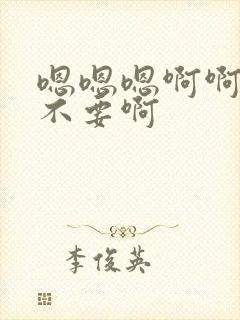 嗯嗯嗯啊啊
不要啊
李俊英